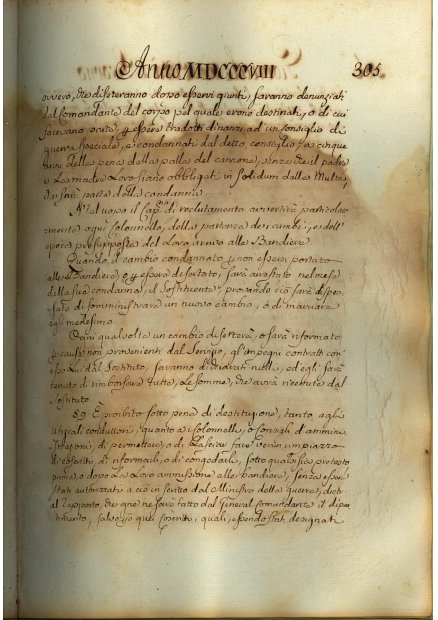 Anno MDCCCVIII 305
ovvero, che diserteranno dopo esservi giunti, saranno denunziati
dal Comandante del corpo pel quale erano destinati, o di cui
facevano parte, essere tradotti dinanzi ad un consiglio di
guerra speciale, e condannati dal detto consiglio a cinque
anni della pena della palla del cannone, senza che il padre
o La madre Loro siano obbligati in solidum della Multa,
che farà parte della condanna
A tal uopo il Cap. di reclutamento avvertirà particolar
mente ogni Colonnello, della partenza dei cambi, e dell'
epoca presupposta del Loro arrivo alle Bandiere.
Quando il cambio condannato non essersi portato
alle Bandiere, o essere disertato, sarà arrestato nel mese
della sua condanna, il Sostituente, provando ciò sarà dispen
sato di somministrare un nuovo cambio, o di marciare
egli medesimo
Ogni qualvolta un cambio diserterà, o sarà riformato
cause non provenienti dal Servizio, gl'impegni contratti con
esso Lui dal Sostituto, saranno dichiarati nulli, ed egli sarà
tenuto di rimborsare tutte Le somme, che avrà ricevute dal
Sostituto
59. È proibito sotto pena di destituzione, tanto agli
Uffiziali conduttori, quanto a Colonnelli, o consigli d'ammini
strazioni, di permettere, o di Lasciar fare verun rimpiazzo
di coscritti, di riformarli, o di congedarli, sotto qualsia pretesto
prima, o dopo La Loro ammissione alle bandiere, senza essere
stati autorizzati a ciò in scritto dal Ministro della guerra, dietro
al rapporto, che gliene sarà fatto dal General Comandante il dipar
timento, salvo quei Coscritti, i quali, essendo stati designati